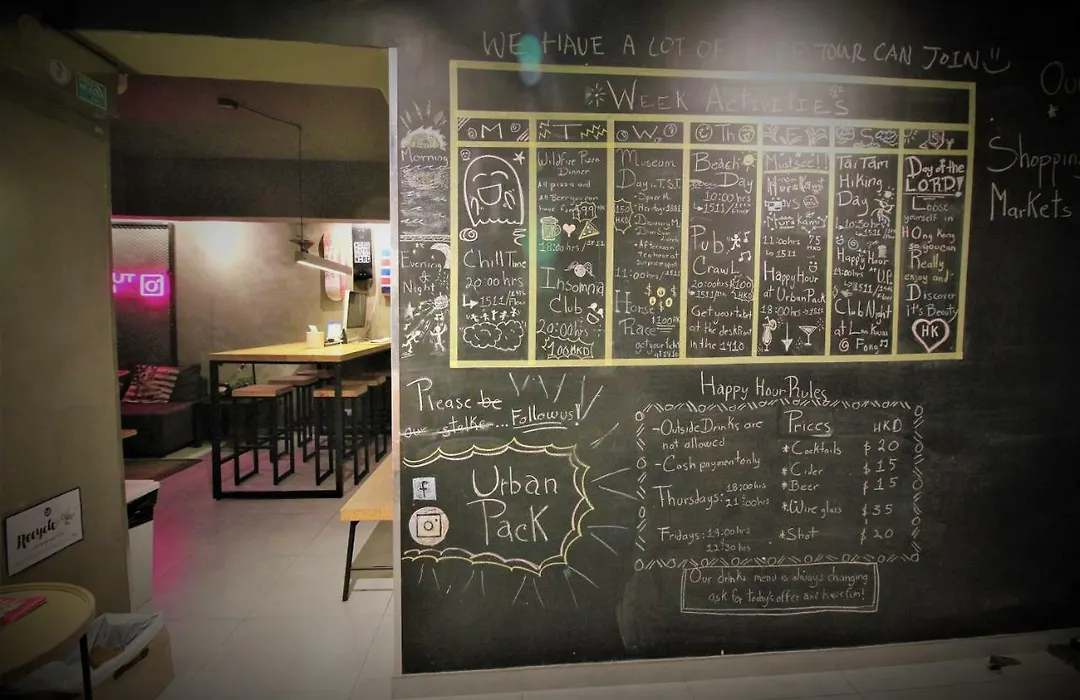 WE HAVE A LOT OF TOUR CAN JOIN
WEEK ACTIVITIES
M T W Th F S S
Morning
Evening
Night
Chill Time
20:00hrs
1511/Floor
Wildfire Pizza
Dinner
All pizza and
All Beer you can
18:00hrs/1511
Insomnia
Club
20:00hrs
100HKD
Museum
Day in T.S.T.
11:00hrs
Horse
Race
get your tkt
at 1410
Beach
Day
10:00hrs
1511/Floor
Pub
Crawl
20:00hrs
Get your tckt
at the desktion
in the 1410
Must see!!
Murakami
vs
Murakamy
11:00hrs
1511
Happy Hour
at Urban Pack
18:00hrs
Tai Tam
Hiking
Day
10:30hrs
1511
Happy Hour
19:00hrs at U.P.
Club Night
at Lan Kwai
Fong
Day of the
LORD!
Loose
yourself in
HOng Kong
so you can
Really
enjoy and
Discover
it's Beauty
HK
Our
Shopping
Markets
Please be
our stalke... Follow us!
Urban
Pack
Happy Hour Rules
-Outside Drinks are
not allowed
-Cash payment only
Thursdays: 18:00hrs
21:00hrs
Fridays: 19:00hrs
22:30hrs
Prices HKD
*Cocktails $20
*Cider $15
*Beer $15
*Wine glass $35
*Shot $20
Our drinks menu is always changing
ask for today's offer and have fun!
UT
Recycle